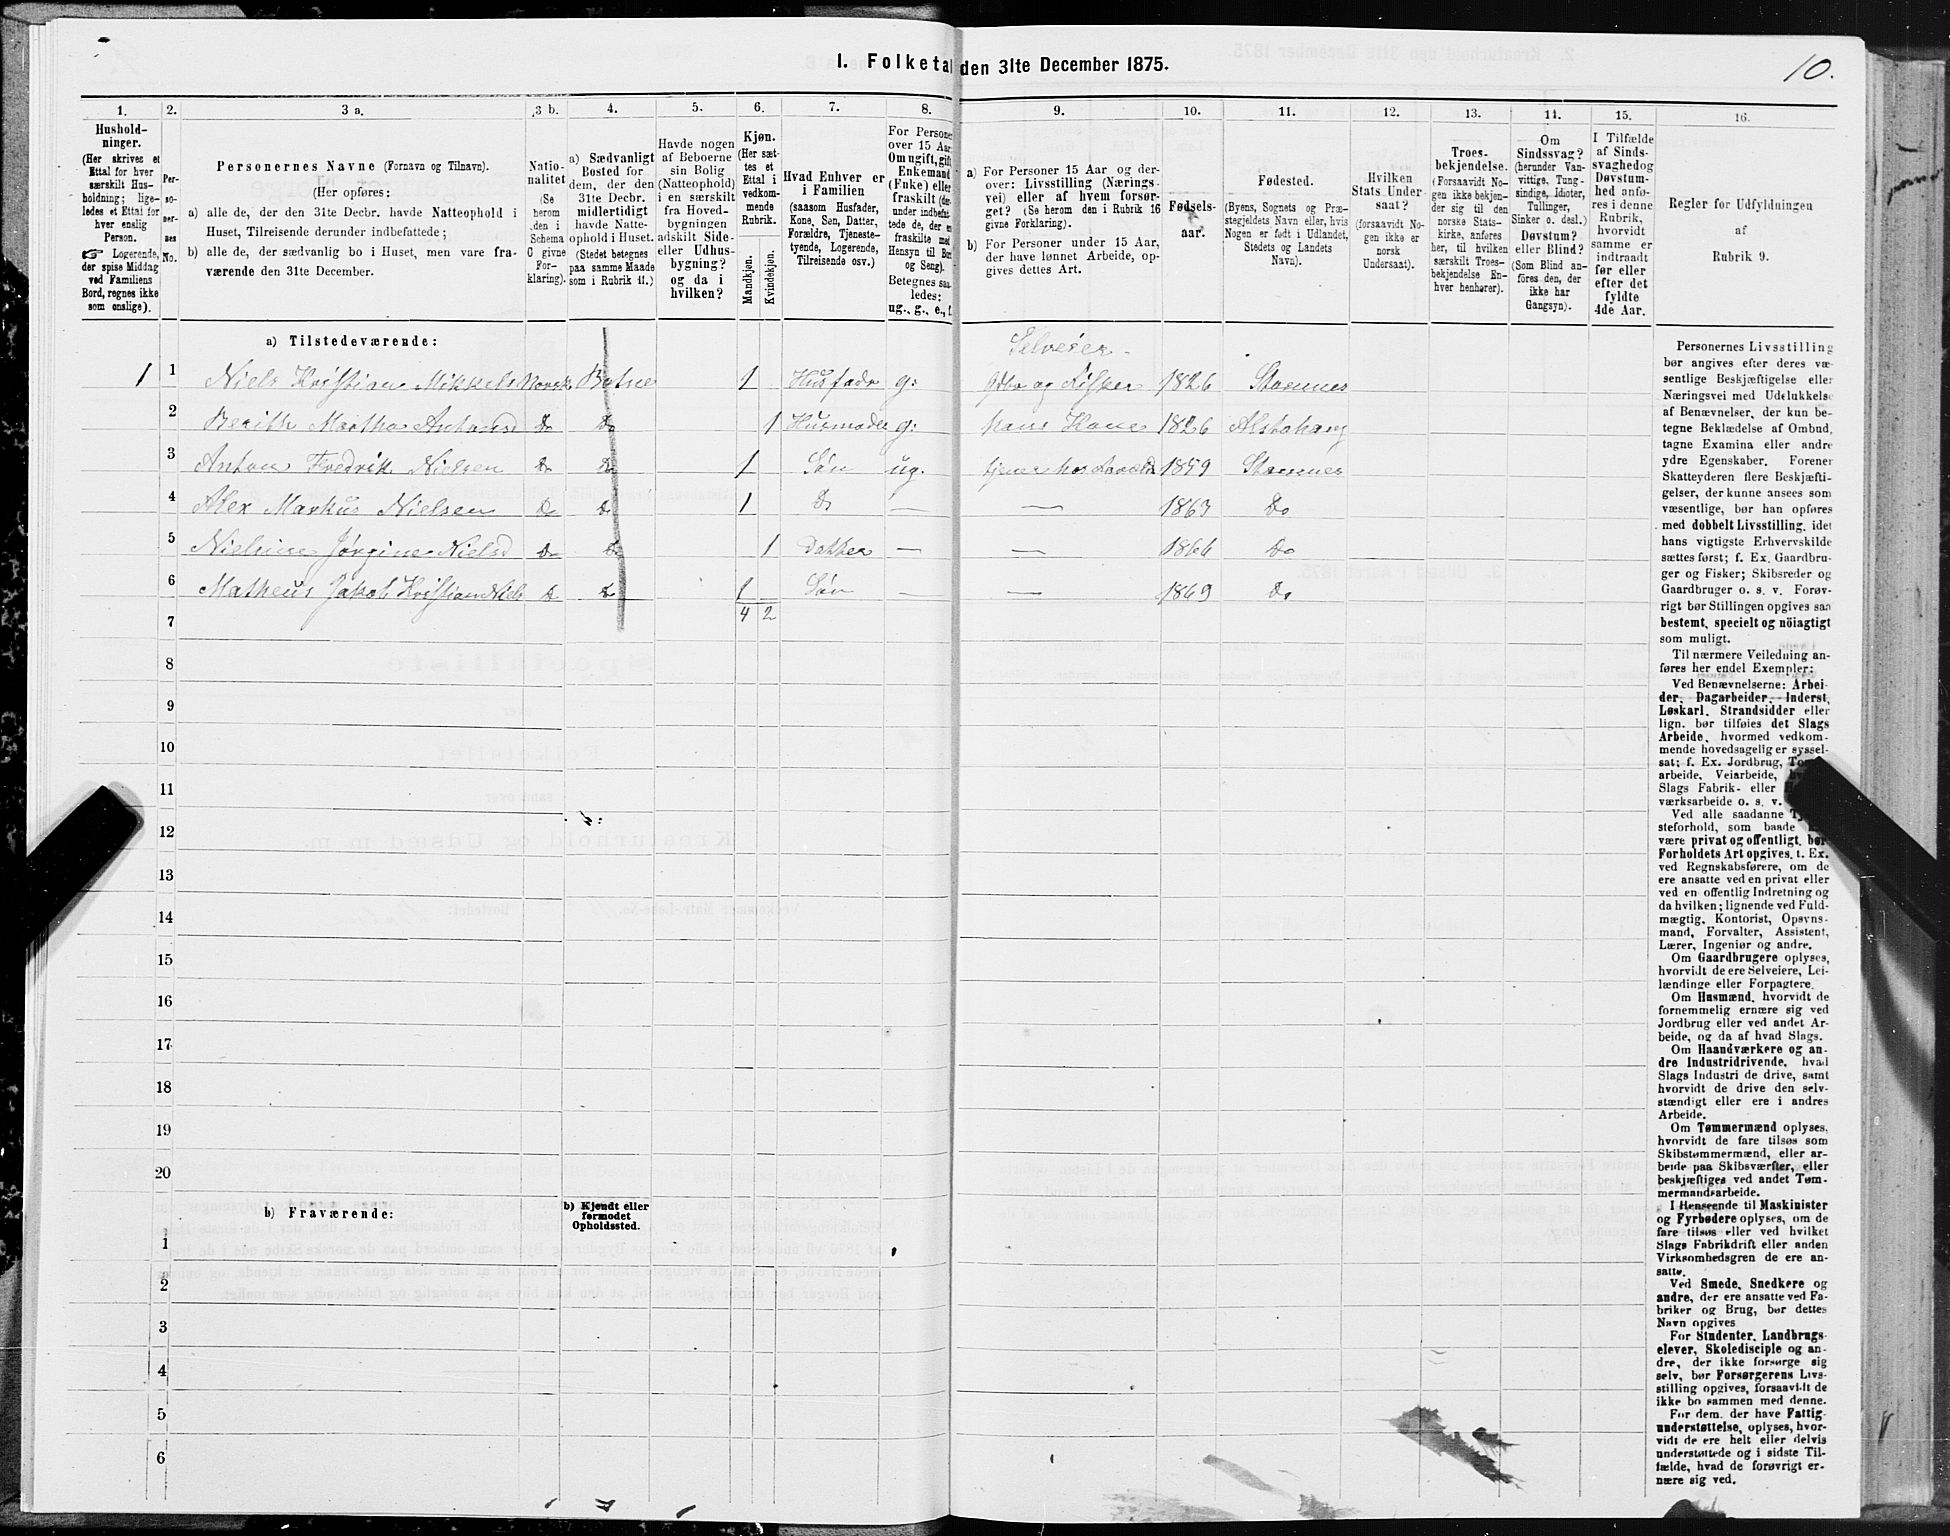 10.
I. Folketal den 31te December 1875.
1. 2. 3 a. 3 b. 4. 5. 6. 7. 8. 9. 10. 11. 12. 13. 14. 15. 16.
Hushold-
ninger.
(Her skrives et
Ettal for hver
særskilt Hus-
holdning; lige-
ledes et Ettal for
hver enslig
Person.
Logerende,
der spise Middag
ved Familiens
Bord, regnes ikke
som enslige).
Per-
so-
ner-
nes
No.
Personernes Navne (Fornavn og Tilnavn).
(Her opføres:
a) alle de, der den 31te Decbr. havde Natteophold i
Huset, Tilreisende derunder indbefattede;
b) alle de, der sædvanlig bo i Huset, men vare fra-
værende den 31te December.
Natio-
nalitet
(Se
herom
den i
Schema
O givne
For-
klaring).
a) Sædvanligt
Bosted for
dem, der den
31te Decbr.
midlertidigt
havde Natte-
ophold i Huset.
(Stedet betegnes
paa samme Maade
som i Rubrik 11.)
Havde nogen
af Beboerne
sin Bolig
(Natteophold)
i en særskilt
fra Hoved-
bygningen
adskilt Side-
eller Udhus-
bygning?
og da i
hvilken?
Kjøn.
(Her sæt-
tes et
Ettal i
vedkom-
mende
Rubrik.
Mandkjøn.
Kvindekjøn.
Hvad Enhver er
i Familien
(saasom Husfader,
Kone, Søn, Datter,
Forældre, Tjeneste-
tyende, Logerende,
Tilreisende osv.)
For Persone
over 15 Aar
Om ugift, gift
Enkemand
(Enke) eller
fraskilt (der-
under indbefat-
tede de, der er
fraskilte med
Hensyn til Bord
og Seng).
Betegnes saa-
ledes:
ug., g., e., f.
a) For Personer 15 Aar og der-
over: Livsstilling (Nærings-
vei) eller af hvem forsør-
get? (Se herom den i Rubrik 16
givne Forklaring).
b) For Personer under 15 Aar,
der have lønnet Arbeide, op-
gives dettes Art.
Fødsels-
aar.
Fødested.
(Byens, Sognets og Præ-
stegjeldets Navn eller, hvis
Nogen er født i Udlandet,
Stedets og Landets
Navn).
Hvilken
Stats Under-
saat?
(forsaavidt No-
gen ikke er
norsk
Undersaat).
Troes-
bekjendelse.
(Forsaavidt No-
gen ikke bekjen-
der sig til den
norske Stats-
kirke, anføres
her, til hvilken
særskilt Troes-
bekjendelse En-
hver henhører).
Om
Sindssvag?
(herunder Van-
vittige, Tung-
sindige, Idioter,
Tullinger,
Sinker o. desl.)
Døvstum?
eller Blind?
(Som Blind an-
føres den, der
ikke har
Gangsyn).
I Tilfælde
af Sinds-
svaghed og
Døvstum-
hed anfø-
res i denne
Rubrik,
hvorvidt
samme er
indtraadt
før eller
efter det
fyldte
4de Aar.
Regler for Udfyldningen
af
Rubrik 9.
a) Tilstedeværende:
Selveier
1 1 Niels Kristian Mikkels Norsk Botne 1 Husfader g: Gdbr og Fisker 1826 Stamnes
2 Berith Martha Antonsd Do Do 1 Husmoder g: hans Kone 1826 Alstahaug
3 Anton Fredrik Nielsen Do Do 1 Søn ug. tjener hos 1859 Stamnes
4 Alex Markus Nielsen Do Do 1 Do — — 1863 Do
5 Nielsine Jørgine Nielsd Do Do 1 Datter — — 1866 Do
6 Matheus Jakob Kristian Niels Do Do 1 Søn — — 1869 Do
7 4 2
8
9
10
11
12
13
14
15
16
17
18
19
20
b) Fraværende:
b) Kjendt eller
formodet
Opholdssted.
1
2
3
4
5
6
Personernes Livsstilling
bør angives efter deres væ-
sentlige Beskjæftigelse eller
Næringsvei med Udelukkelse
af Benævnelser, der kun be-
tegne Beklædelse af Ombud,
tagne Examina eller andre
ydre Egenskaber. Forener
Skatteyderen flere Beskjæfti-
gelser, der kunne ansees som
væsentlige, bør han opføres
med dobbelt Livsstilling, idet
hans vigtigste Erhvervskilde
sættes først; f. Ex. Gaardbru-
ger og Fisker; Skibsreder og
Gaardbruger o. s. v. Forøv-
rigt bør Stillingen opgives saa
bestemt, specielt og nöiagtigt
som muligt.
Til nærmere Veiledning an-
føres her endel Exempler:
Ved Benævnelserne: Arbei-
der, Dagarbeider, Inderst,
Løskarl, Strandsidder eller
lign. bør tilføies det Slags
Arbeide, hvormed vedkom-
mende hovedsagelig er syssel-
sat; f. Ex. Jordbrug,
arbeide, Veiarbeide,
Slags Fabrik- eller
værksarbeide o. s. v.
Ved alle saadanne
steforhold, som baade
være privat og offentligt, bør
Forholdets Art opgives, t. Ex.
ved Regnskabsførere, om de
ere ansatte ved en privat eller
ved en offentlig Indretning og
da hvilken; lignende ved Fuld-
mægtig, Kontorist, Opsyns-
mand, Forvalter, Assistent,
Lærer, Ingeniør og andre.
Om Gaardbrugere oplyses,
hvorvidt de ere Selveiere, Lei-
lændinge eller Forpagtere.
Om Husmænd, hvorvidt de
fornemmelig ernære sig ved
Jordbrug eller ved andet Ar-
beide, og da af hvad Slags.
Om Haandværkere og an-
dre Industridrivende, hvad
Slags Industri de drive, samt
hvorvidt de drive den selv-
stændigt eller ere i andres
Arbeide.
Om Tømmermænd oplyses,
hvorvidt de fare tilsøs som
Skibstømmermænd, eller ar-
beide paa Skibsværfter, eller
beskjæftiges ved andet Tøm-
mermandsarbeide.
I Henseende til Maskinister
og Fyrbødere oplyses, om de
fare tilsøs eller ved hvilket
Slags Fabrikdrift eller anden
Virksomhedsgren de ere an-
satte.
Ved Smede, Snedkere og
andre, der ere ansatte ved Fa-
briker og Brug, bør dettes
Navn opgives
For Studenter, Landbrugs-
elever, Skoledisciple og an-
dre, der ikke forsørge sig
selv, bør Forsørgerens Livs-
stilling opgives, forsaavidt de
ikke bo sammen med denne.
For dem, der have Fattig-
understøttelse, oplyses, hvor-
vidt de ere helt eller delvis
understøttede og i sidste Til-
fælde, hvad de forøvrigt er-
nære sig ved.